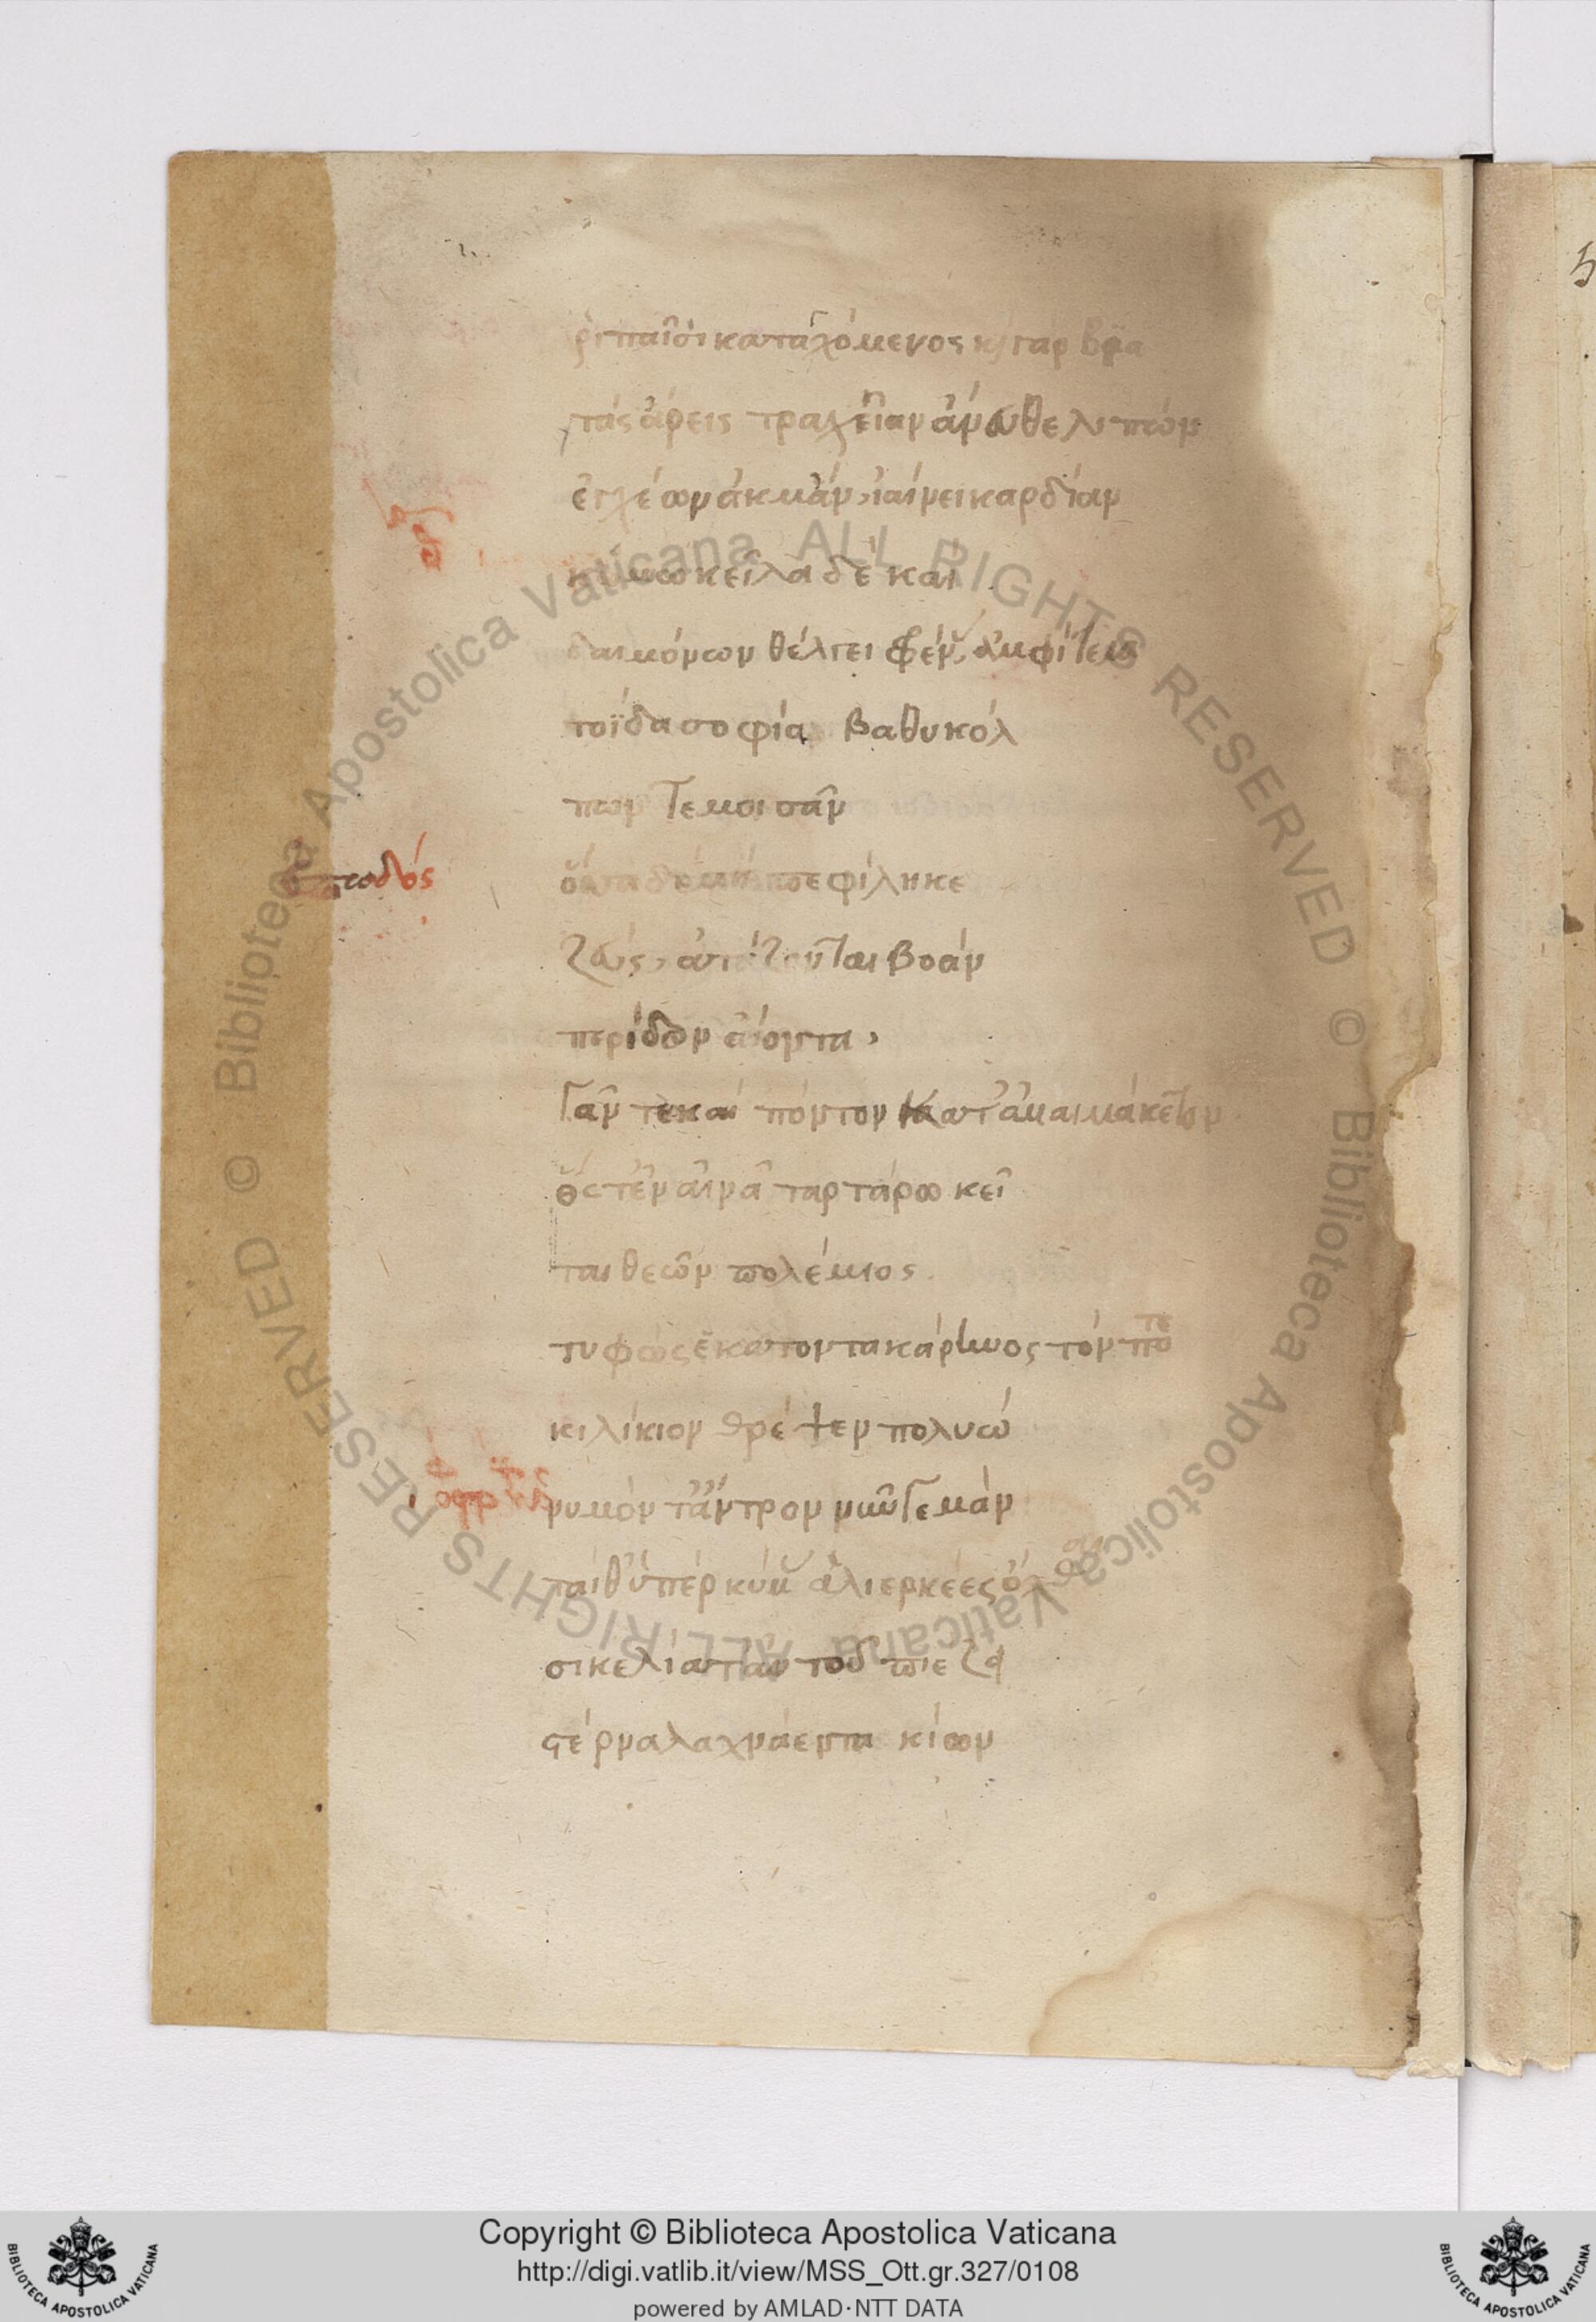 ῥιπαῖσι κατασχόμενος κ γὰρ βια
τὰς ἄρεις τραχεῖαν ἄνευθε λιπών
ἐγχέων ἀκμάν, ἰαίνει καρδίαν
κώμω κεῖλα δὲ καὶ
δαιμόνων θέλγει φρέν, ἀμφί τε λα
τοΐδα σοφία βαθυκόλ
πων τε μοισᾶν
ἐπωδός
ὅσσα δὲ μήποτε φίληκε
Ζεύς, ἀτύζονται βοάν
περίδων ἀΐοντα,
Γᾶν τε καὶ πόντον κατ' ἀμαιμάκετον
ὅς τ' ἐν αἰνᾶ ταρτάρω κεῖ
ται θεῶν πολέμιος
τυφὼς ἑκατοντακάρηνος τόν ποτε
κιλίκιον θρέψεν πολυώ
νυμόν τ' ἄντρον νῦν γε μὰν
ταί θ' ὑπὲρ κύμ ἁλιερκέες ὄχθαι
σικελία τ' αὐτοῦ πιέζει
στέρνα λαχνάεντα κίων
Copyright © Biblioteca Apostolica Vaticana
http://digi.vatlib.it/view/MSS_Ott.gr.327/0108
powered by AMLAD·NTT DATA
BIBLIOTECA APOSTOLICA VATICANA
BIBLIOTECA APOSTOLICA VATICANA
© Biblioteca Apostolica Vaticana ALL RIGHTS RESERVED © Biblioteca Apostolica Vaticana ALL RIGHTS RESERVED
5